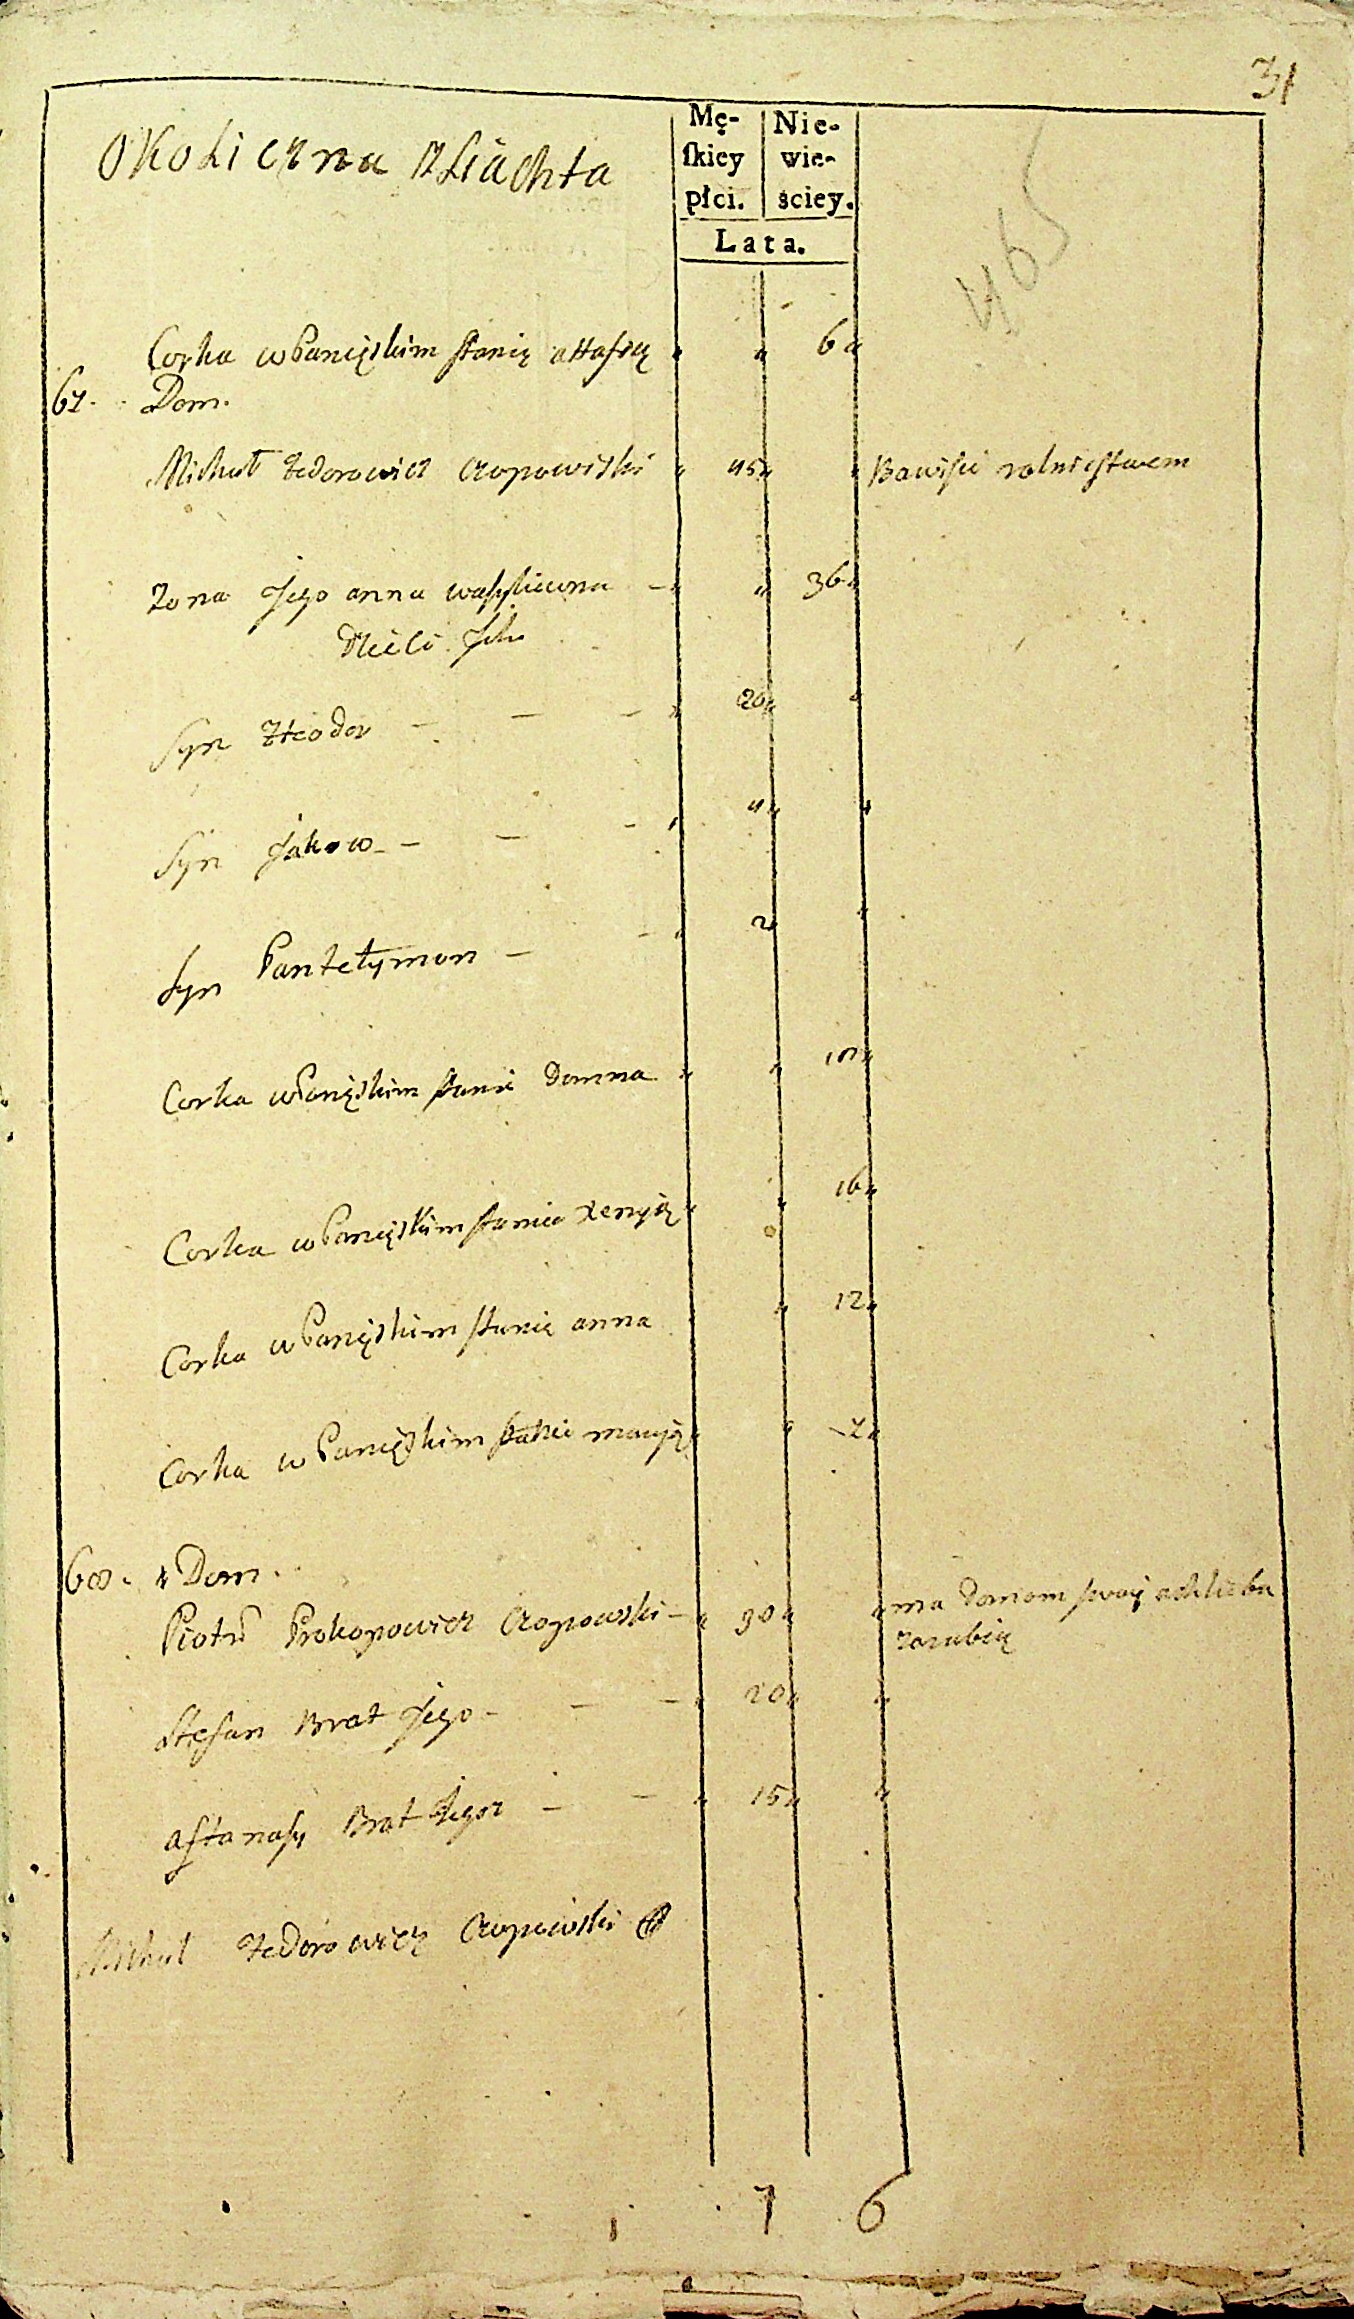 31
Okoliczna Szliachta
Mę-
skiey
płci.
Nie-
wie-
ściey.
Lata.
465
Corka w Panięskim stanię 6
67. Dom.
Michał Fedorowicz Czopowski 45 Bawisie rolnictwem
Zona Jego anna wasyliewna 36
Dzieci Ich
Syn Fteodor 20
Syn Jakow 4
Syn Pantełymon 2
Corka w Panięskim stanie Domna
Corka w Panięskim stanie Xenyię 16
Corka w Panięskim stanię anna 12
Corka w Panięskim stanie maryię
68. Dom.
Piotr Prokopowicz Czopowski 30 ma Dom swoy
Stefan Brat Jego 20
aftanasy Brat Jego 15
Michał Fedorowicz Czopowski
7 6